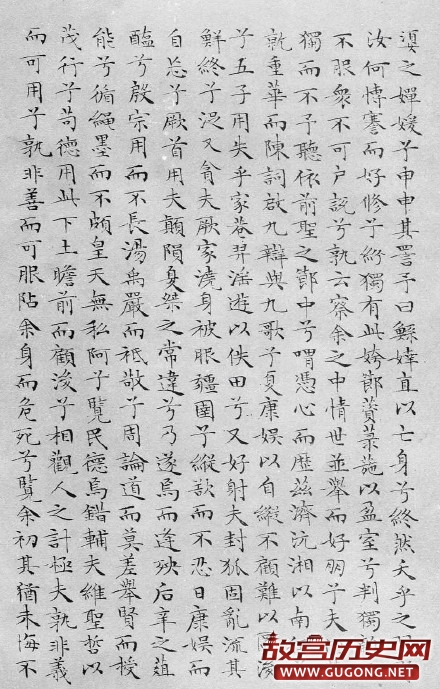 媭之嬋媛兮申申其詈予曰鯀婞直以亡身兮終然夭乎之
汝何博謇而好修兮紛獨有此姱節薋菉葹以盈室兮判獨
不服衆不可户說兮孰云察余之中情世並舉而好朋兮夫
獨而不予聽依前聖之節中兮喟憑心而歷茲濟沅湘以南
就重華而陳詞啟九辯與九歌兮夏康娛以自縱不顧難以圖後
兮五子用失乎家巷羿淫遊以佚田兮又好射夫封狐固亂流其
鮮終兮浞又貪夫厥家澆身被服彊圉兮縱欲而不忍日康娛而
自忘兮厥首用夫顛隕夏桀之常違兮乃遂焉而逢殃后辛之葅
醢兮殷宗用而不長湯禹嚴而祗敬兮周論道而莫差舉賢而授
能兮循繩墨而不頗皇天無私阿兮覽民德焉錯輔夫維聖哲以
茂行兮苟德用此下土瞻前而顧後兮相觀人之計極夫孰非義
而可用兮孰非善而可服阽余身而危死兮覽余初其猶未悔不
故宫历史网
WWW.GUGONG.NET